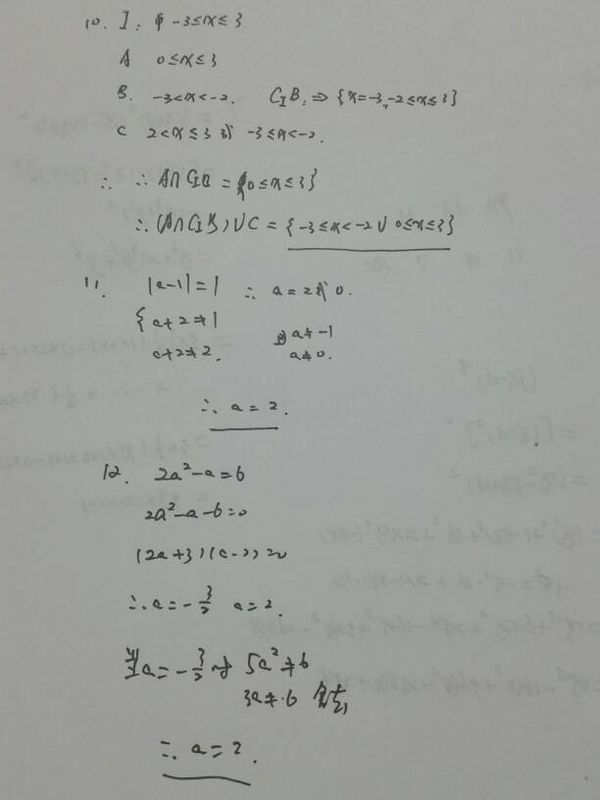 10. I: -3≤x≤3
A 0≤x≤3
B. -3<x<-2. C_I B. ⇒ {x=-3,-2≤x≤3}
C 2<x≤3 或 -3≤x<-2.
∴ ∴ A∩C_I B = {0≤x≤3}
∴ (A∩C_I B)∪C = {-3≤x<-2∪0≤x≤3}
11. |a-1|=1 ∴ a=2或0.
{a+2≠1 a≠-1
a+2≠2. a≠0.
∴ a=2.
12. 2a²-a=6
2a²-a-6=0
(2a+3)(a-2)=0
∴a=-3/2 a=2.
当a=-3/2时 5a²≠6
3a≠6
∴ a=2.